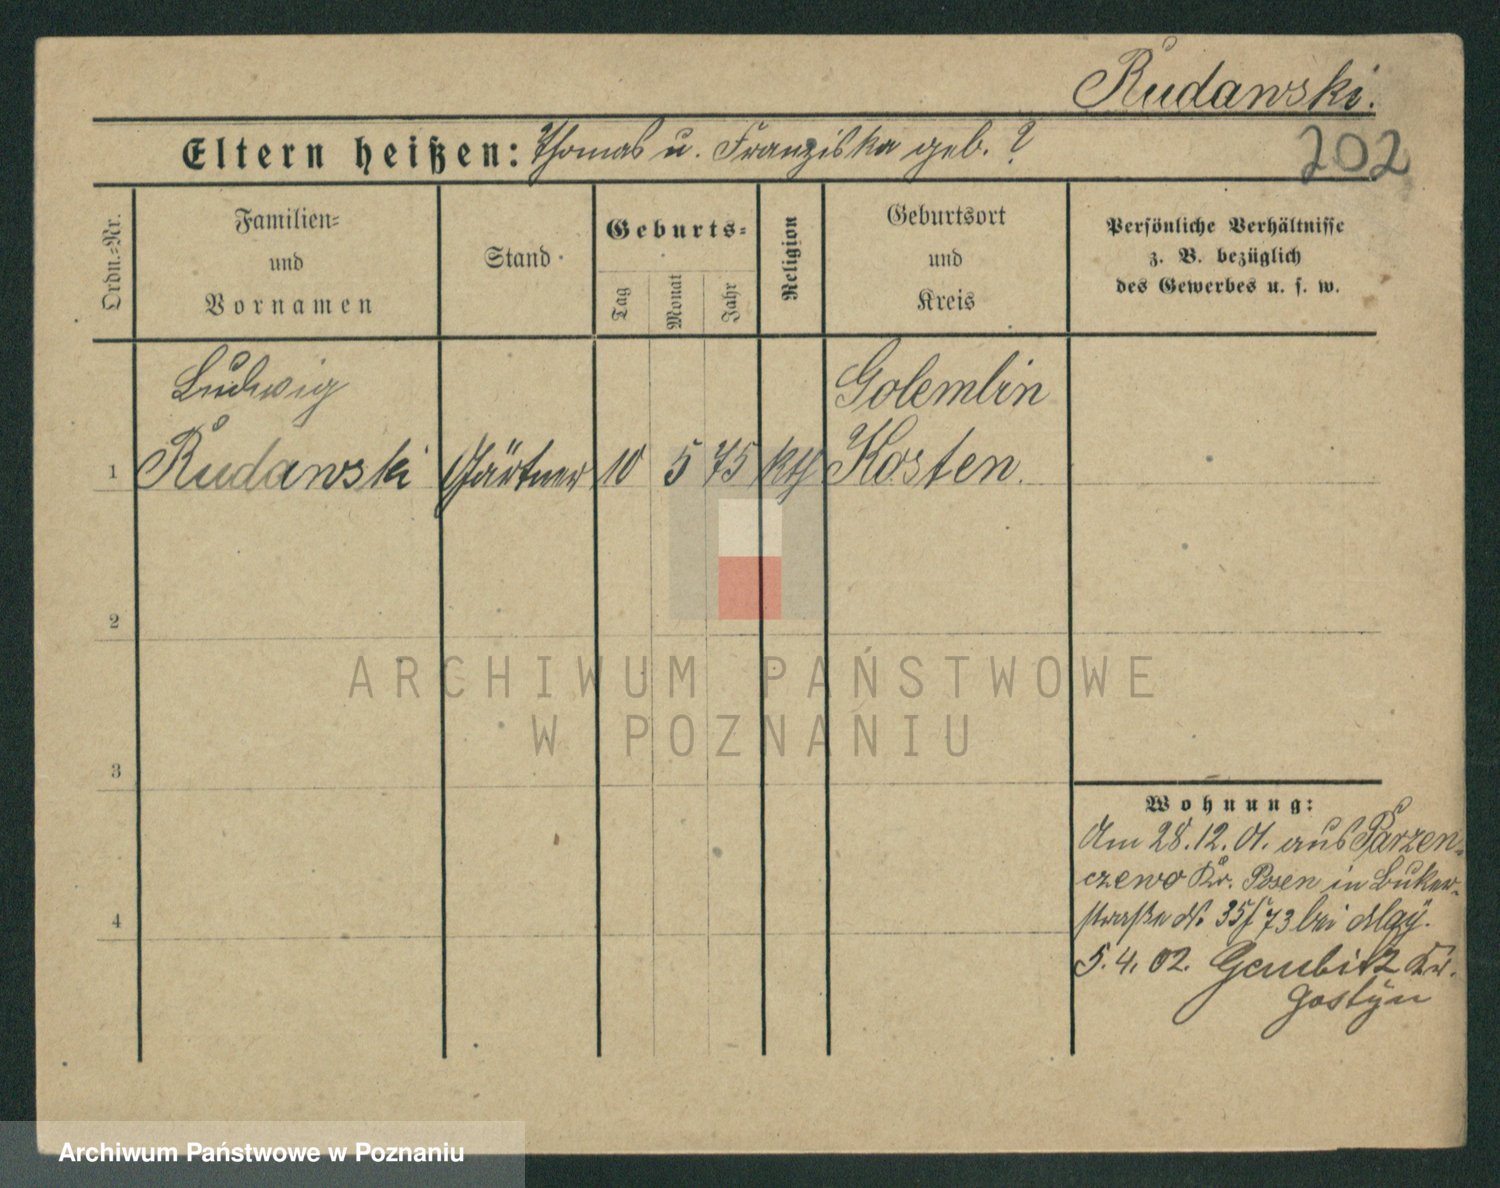 Rudawski.
202
Eltern heißen: Thomas u. Franziska geb. ?
Ordn.-Nr.
Familien-
und
Vornamen
Stand
Geburts-
Tag
Monat
Jahr
Religion
Geburtsort
und
Kreis
Persönliche Verhältnisse
z. B. bezüglich
des Gewerbes u. s. w.
Ludwig
Golembin
1 Rudawski Gärtner 10 5 75 kth Kosten.
2
ARCHIWUM PAŃSTWOWE
W POZNANIU
3
4
Wohnung:
Am 28.12.01. aus Parzen-
czewo Kr. Posen in Buker-
straße No 35/73 bei
5.4.02. Gembitz Kr.
Gostyn
Archiwum Państwowe w Poznaniu